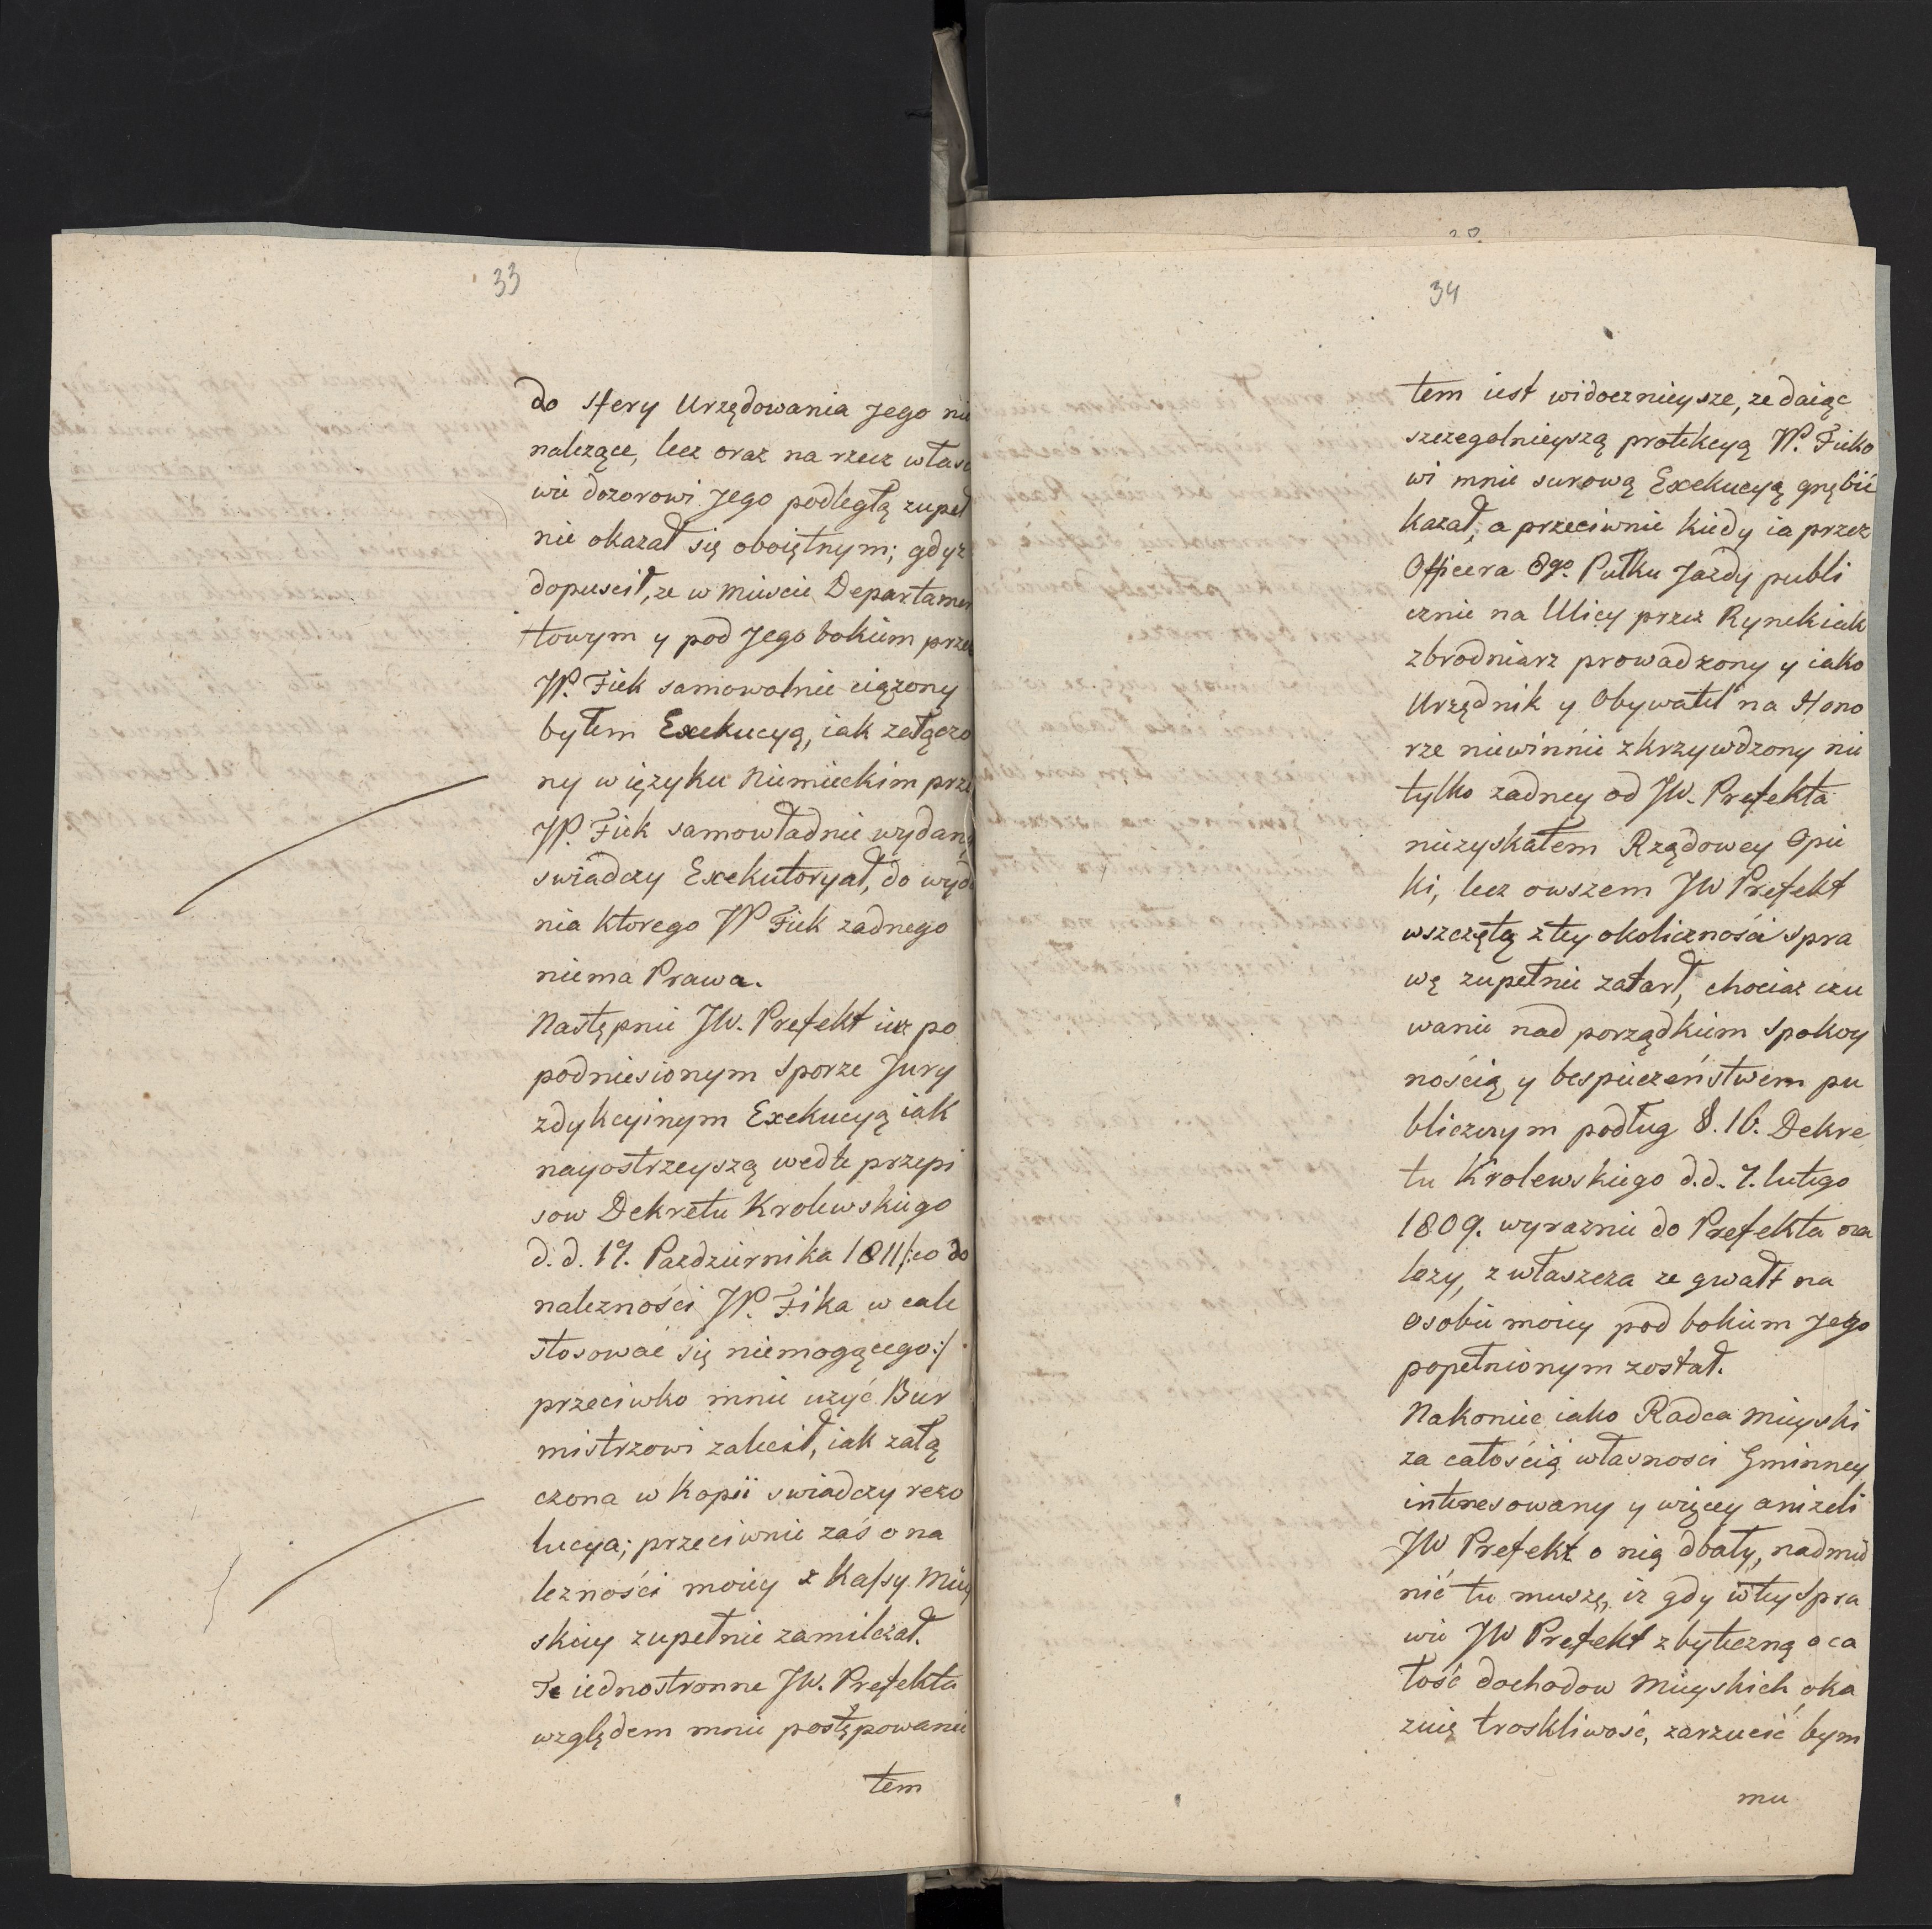 33
do sfery Urzędowania Jego nie
nalezące, lecz oraz na rzecz własc
wie dozorowi Jego podległą zupeł
nie okazał się oboiętnym; gdyż
dopuscił, ze w mieście Departamen
towym y pod Jego bokiem przez
W. Fiek samowolnie ciązony
byłem Exekucyą, iak załączo
ny w ięzyku Niemieckim prze
W. Fiek samowładnie wydany
swiadczy Exekutoryał, do wyda
nia ktorego W Fiek zadnego
niema Prawa.
Następnie JW. Prefekt iuz po
podniesionym Sporze Jury
zdykcyinym Exekucyą iak
nayostrzeyszą wedle przepi
sow Dekretu Krolewskiego
d. d. 17. Pazdziernika 1811 /:co do
nalezności W. Fika w cale
stosować się niemogącego:/
przeciwko mnie uzyć Bur
mistrzowi zalecił, iak załą
czona w Kopii swiadczy rezo
lucya; przeciwnie zaś o na
lezności moiey z Kassy Miey
skiey zupełnie zamilczał.
Te iednostronne JW. Prefekta
względem mnie postępowanie
tem
34
tem iest widocznieysze, ze daiąc
szczegolnieyszą protekcyą W. Fieko
wi mnie surową Exekucyą gnębić
kazał, a przeciwnie kiedy ia przez
Officera 8go. Pułku Jazdy publi
cznie na Ulicy przez Rynek iak
zbrodniarz prowadzony y iako
Urzędnik y Obywatel na Hono
rze niewinnie zkrzywdzony nie
tylko zadney od JW. Prefekta
nieuzyskałem Rządowey Opie
ki, lecz owszem JW Prefekt
wszczętą z tey okoliczności spra
wę zupełnie zatarł, chociaz czu
wanie nad porządkiem Spokoy
nością y bespieczeństwem pu
blicznym podług §. 16. Dekre
tu Krolewskiego d. d. 7. lutego
1809. wyraznie do Prefekta na
lezy, z własz­cza ze gwałt na
osobie moiey pod bokiem Jego
popełnionym został.
Nakoniec iako Radca Mieyski
za całością własnosci Gminney
interesowany y więcey anizeli
JW Prefekt o nią dbały, nadmie
nić tu muszę, iz gdy w tey Spra
wie JW Prefekt zbyteczną o ca
łość dochodow Mieyskich oka
zuię troskliwość, zarzucić bym
mu